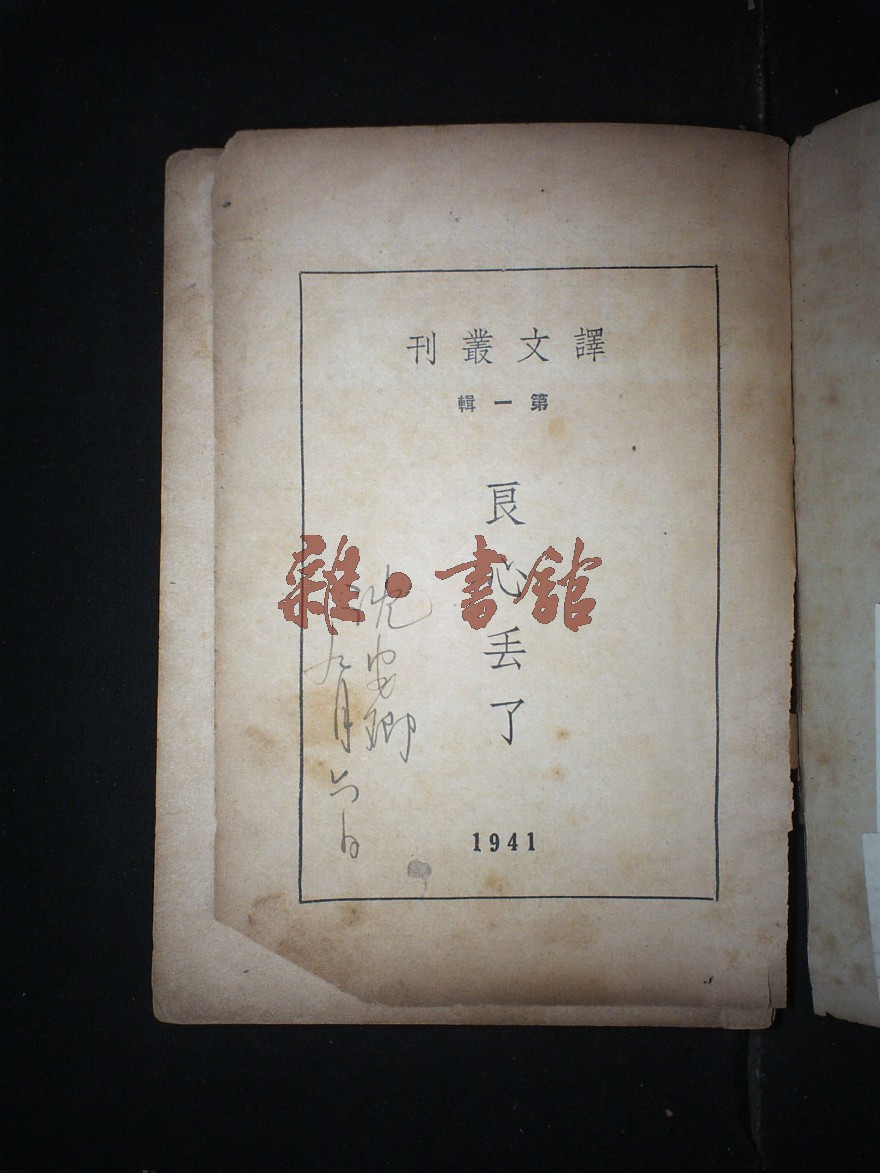 譯文叢刊
第一輯
良心丟了
1941
沈
九月六日
雜·書館